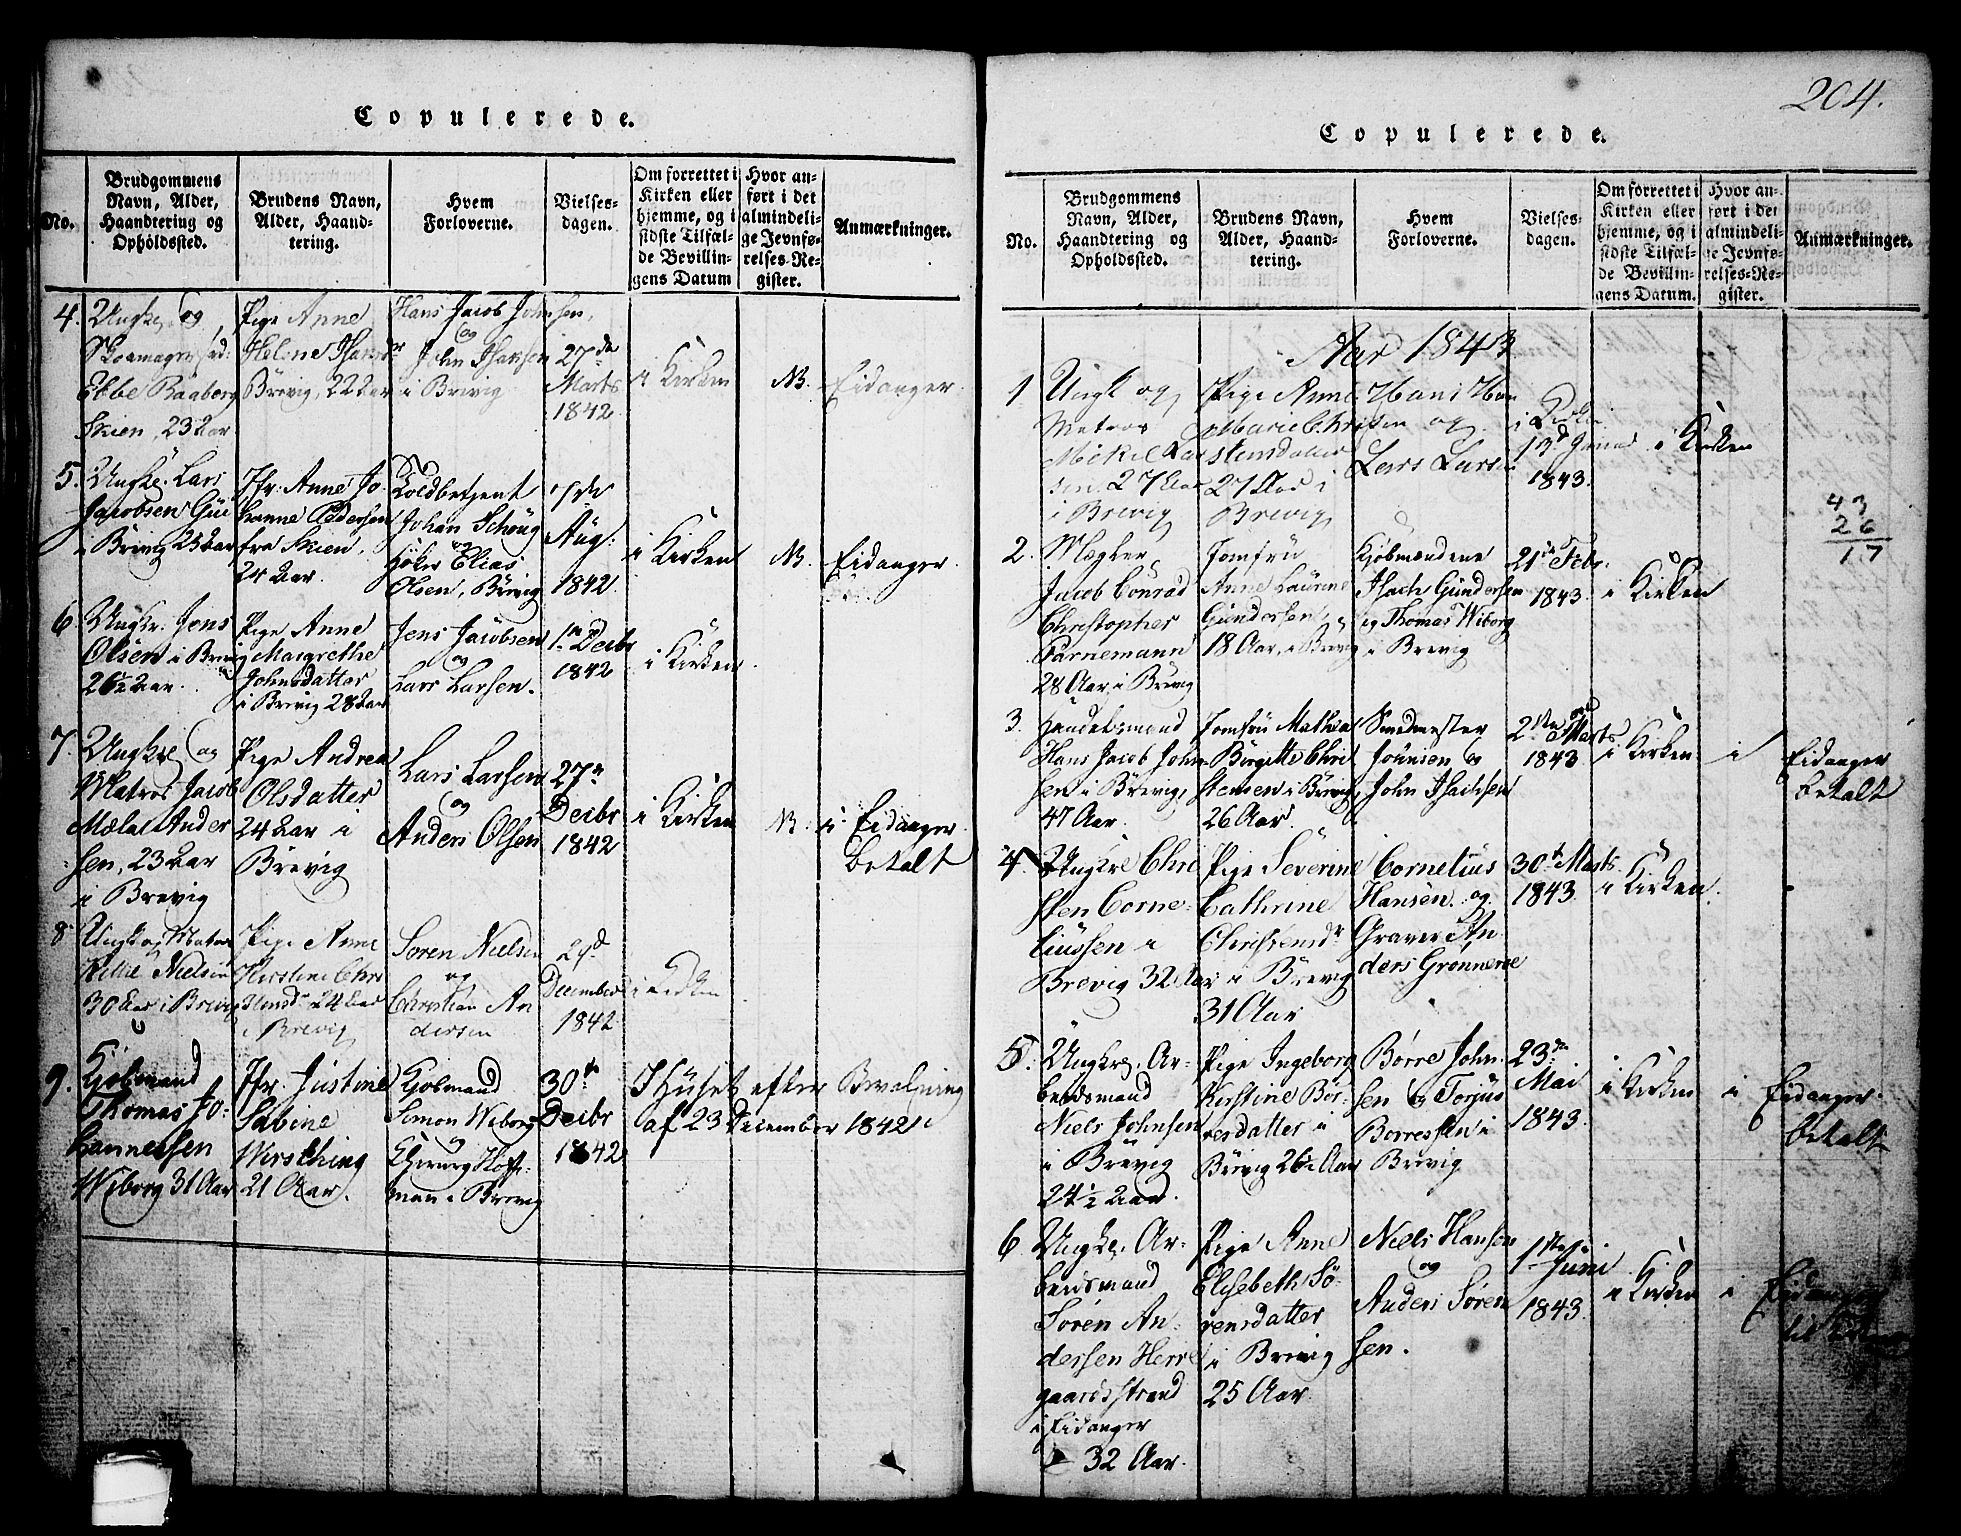 Copulerede.
No.
Brudgommens
Navn, Alder,
Haandtering og
Opholdssted.
Brudens Navn,
Alder, Haand-
tering.
Hvem
Forloverne.
Vielses-
dagen.
Om forrettet i
Kirken eller
hjemme, og i
sidste Tilfæl-
de Bevillin-
gens Datum
Hvor an-
ført i det
almindeli-
ge Jevnfø-
relses-Re-
gister.
Anmærkninger.
4.
Ungke. og
Skoemager
Ebbe Raaborg
Skien, 23 Aar
Pige Anne
Helene Isaksdr
Brevig, 22 Aar
Hans Jacob Johnsen,
og
John Isaksen
i Brevig
27de
Marts
1842
i Kirken
N.
Eidanger.
5.
Ungke. Lars
Jacobsen
i Brevig 23 Aar
Jfr. Anne Jo-
hanne Pedersen
fra Skien,
24 Aar.
Toldbetjent
Johan Schoug
og
Høker Elias
Olsen, Brevig
7de
Aug:
1842
i Kirken
N.
Eidanger.
6.
Ungkr. Jens
Olsen i Brevig
26½ Aar.
Pige Anne
Margrethe
Johnsdatter
i Brevig 28 Aar
Jens Jacobsen
og
Lars Larsen.
1n Decbr
1842
i Kirken
7.
Ungkr. og
Matros Jacob
Ander
sen, 23 Aar
i Brevig
Pige Andrea
Olsdatter
24 Aar i
Brevig
Lars Larsen
og
Anders Olsen
27n
Decbr
1842
i Kirken
N.
i Eidanger
betalt
8
Ungk og Matros
Nielsen
30 Aar i Brevig
Pige Anne
Kirstine
24 Aar
i Brevig
Søren Nielsen
og
Christian An
dersen
29d
December
1842
i Kirken
9.
Kjøbmand
Thomas Jo-
hannessen
Wiborg 31 Aar
Jfr. Justine
Sabine
Wirsching
21 Aar.
Kjøbmand
Simon Wiborg
og
Chirurg Hoff-
man i Brevig
30te
Decbr
1842
I Huset efter Bevilgning
af 23 December 1842
204.
Copulerede.
No.
Brudgommens
Navn, Alder,
Haandtering og
Opholdssted.
Brudens Navn,
Alder, Haand-
tering.
Hvem
Forloverne.
Vielses-
dagen.
Om forrettet i
Kirken eller
hjemme, og i
sidste Tilfæl-
de Bevillin-
gens Datum.
Hvor an-
ført i det
almindeli-
ge Jevnfø-
relses-Re-
gister.
Anmærkninger.
Aar 1843
1
Ungk og
Matros
Mikel Lar
sen 27 Aar
i Brevig
Pige Anne
Marie Chri
stensdatter
27 Aar i
Brevig
Hans Han
sen og
Lars Larsen
13d
1843.
i Kirken
43
26
17
2.
Mægler
Jacob Conrad
Christopher
Parnemann
28 Aar, i Brevig
Jomfru
Anne Laurine
Gundersen
18 Aar, i Brevig
Kjøbmændene
Isach Gundersen
og Thomas Wiborg
i Brevig
21de Febr.
1843.
i Kirken
3.
Handelsmand
Hans Jacob John
sen i Brevig,
47 Aar.
Jomfru Mathea
Birgitte Chri
stensen i Brevig,
26 Aar.
Smedmester
Johnsen og
John Isachsen
2den Marts
1843
i Kirken
i
Eidanger
betalt
4.
Ungkr Chri
sten Corne-
liussen i
Brevig 32 Aar
Pige Severine
Cathrine
Christensdr
i Brevig
31 Aar
Cornelius
Hansen og
Graver An
ders Grønnerne
30t Marts
1843
i Kirken.
5.
Ungkr. Ar-
beidsmand
Niels Johnsen
i Brevig
24½ Aar.
Pige Ingeborg
Kirstine Bør-
resdatter i
Brevig 26½ Aar
Børre John-
sen og Torjus
Borressen i
Brevig
23de
Mai
1843.
i Kirken
i
Eidanger.
betalt
6
Ungkr. Ar-
beidsmand
Søren An-
dersen Herre
gaardsstrand
i Eidanger
32 Aar.
Pige Anne
Elisebeth Sø-
rensdatter
i Brevig
25 Aar
Niels Hansen
og
Anders Søren
sen.
1ste
Juni
1843.
i Kirken
i
Eidanger